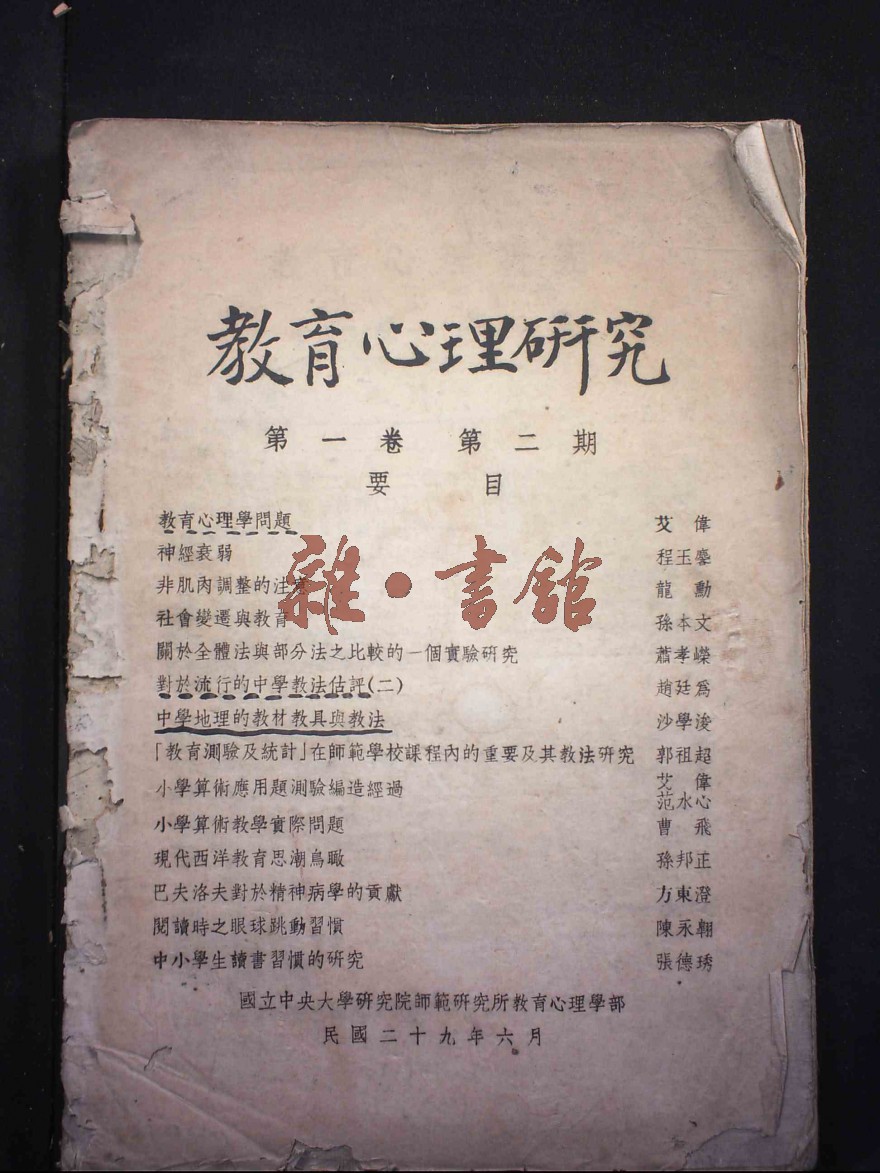 教育心理研究
第一卷 第二期
要目
教育心理學問題 艾偉
神經衰弱 程玉麐
非肌肉調整的注意 龍勳
社會變遷與教育 孫本文
關於全體法與部分法之比較的一個實驗研究 蕭孝嶸
對於流行的中學教法估評(二) 趙廷為
中學地理的教材教具與教法 沙學浚
「教育測驗及統計」在師範學校課程內的重要及其教法研究 郭祖超
小學算術應用題測驗編造經過 艾偉 范水心
小學算術教學實際問題 曹飛
現代西洋教育思潮鳥瞰 孫邦正
巴夫洛夫對於精神病學的貢獻 方東澄
閱讀時之眼球跳動習慣 陳永翱
中小學生讀書習慣的研究 張德琇
國立中央大學研究院師範研究所教育心理學部
民國二十九年六月
雜·書館